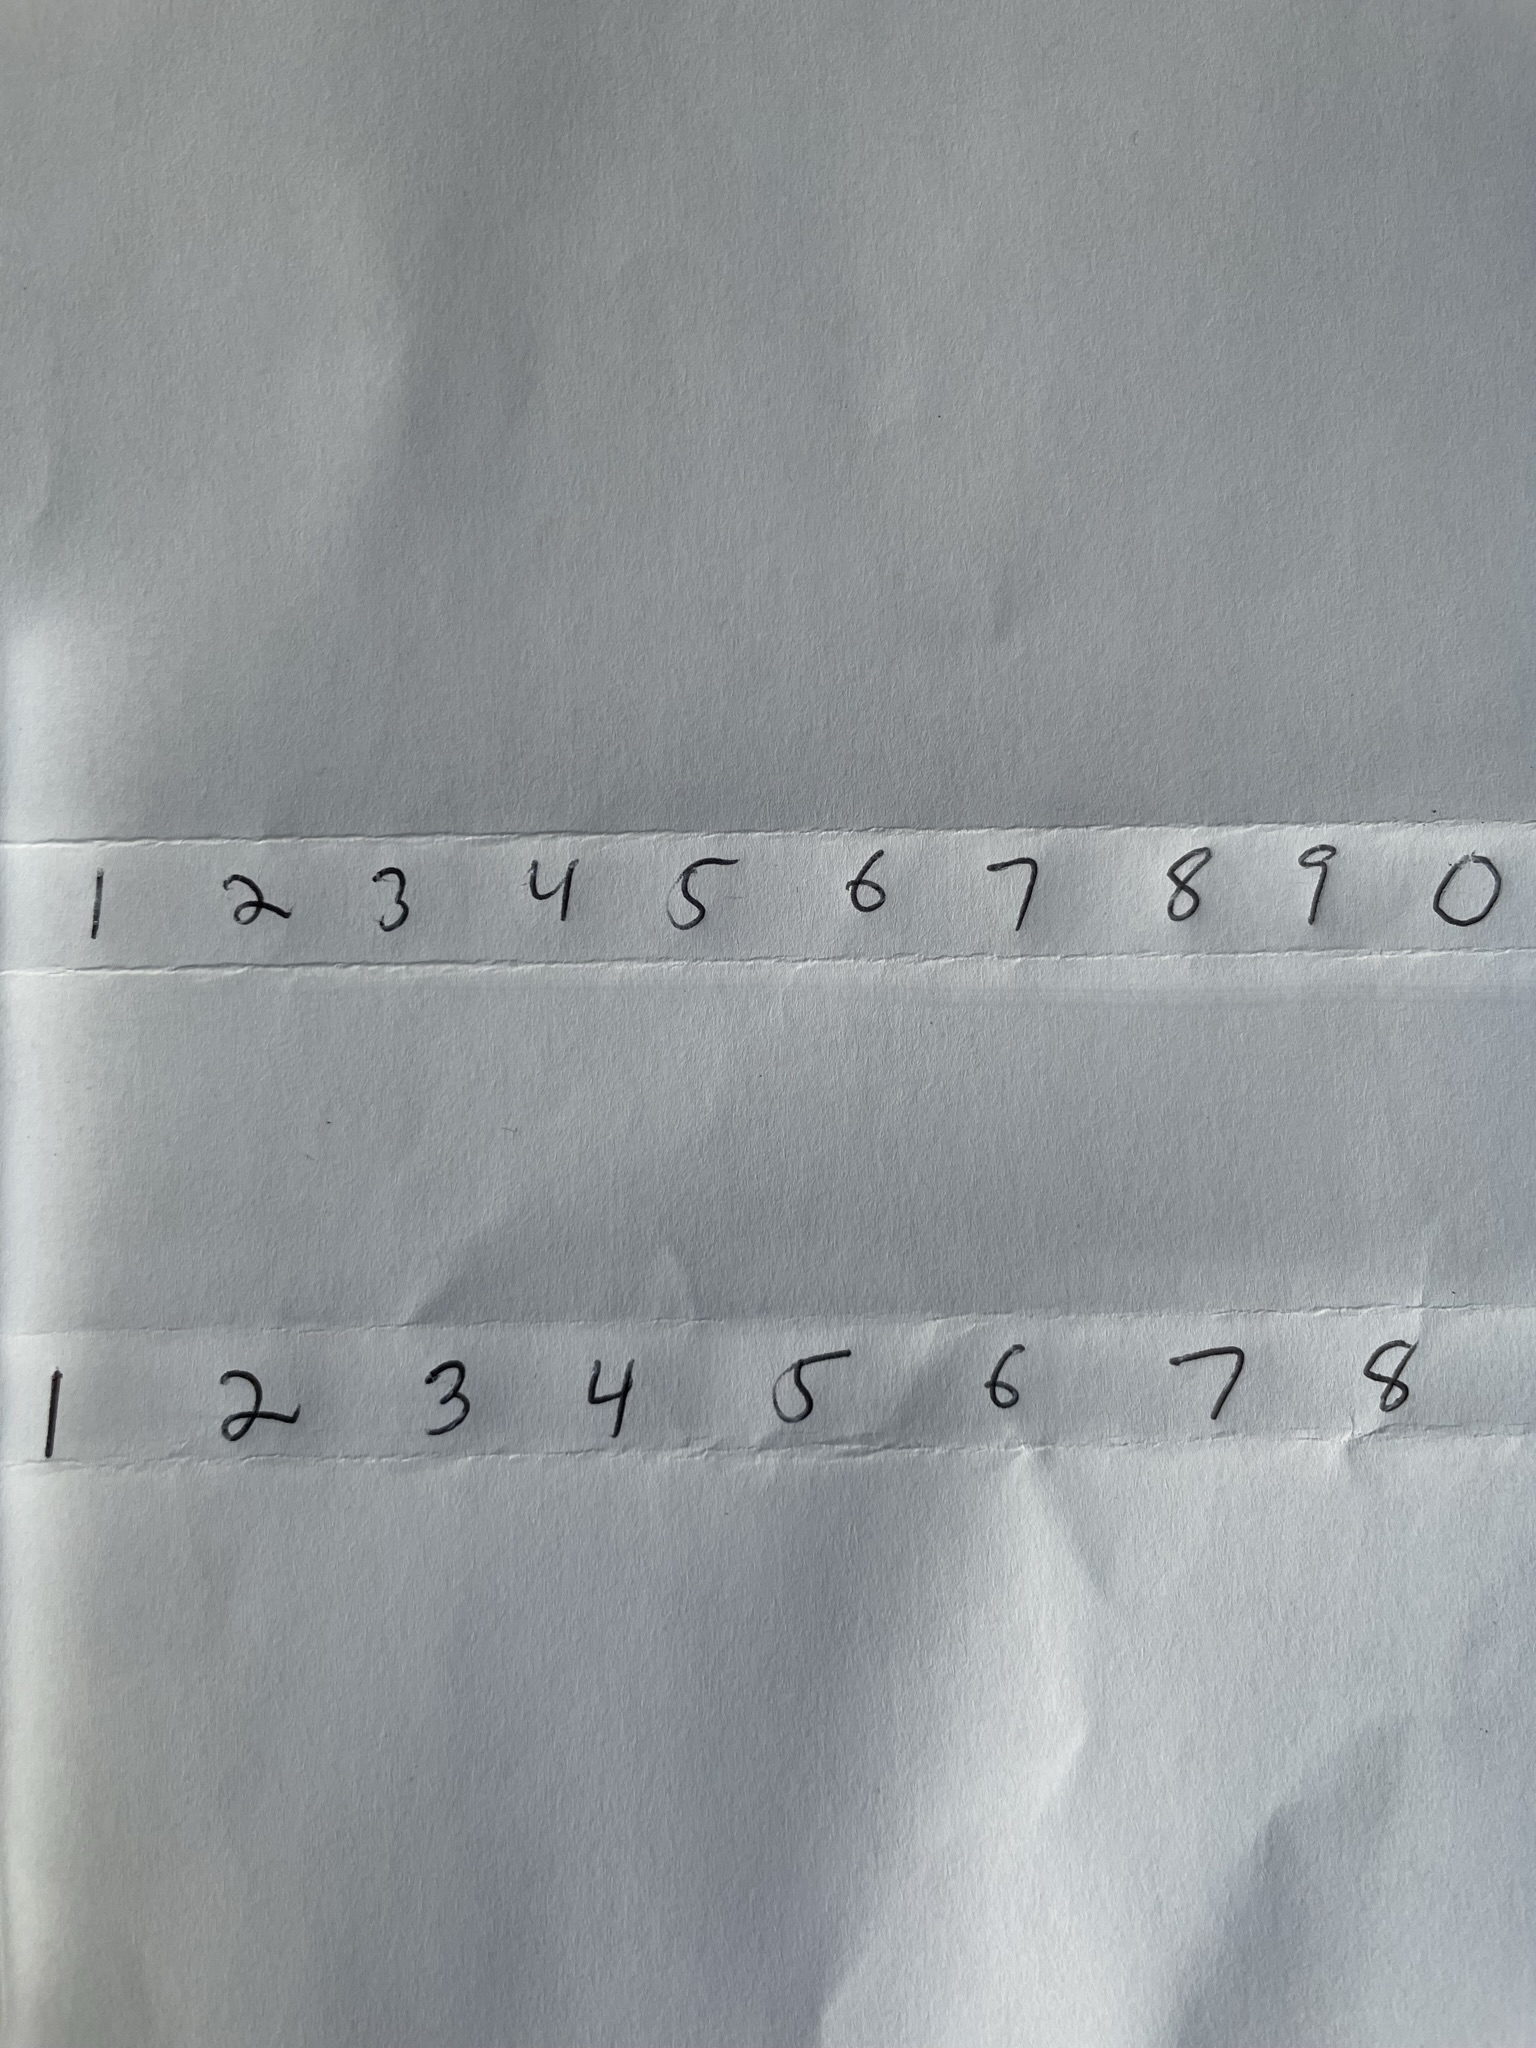 1 2 3 4 5 6 7 8 9 0
1 2 3 4 5 6 7 8